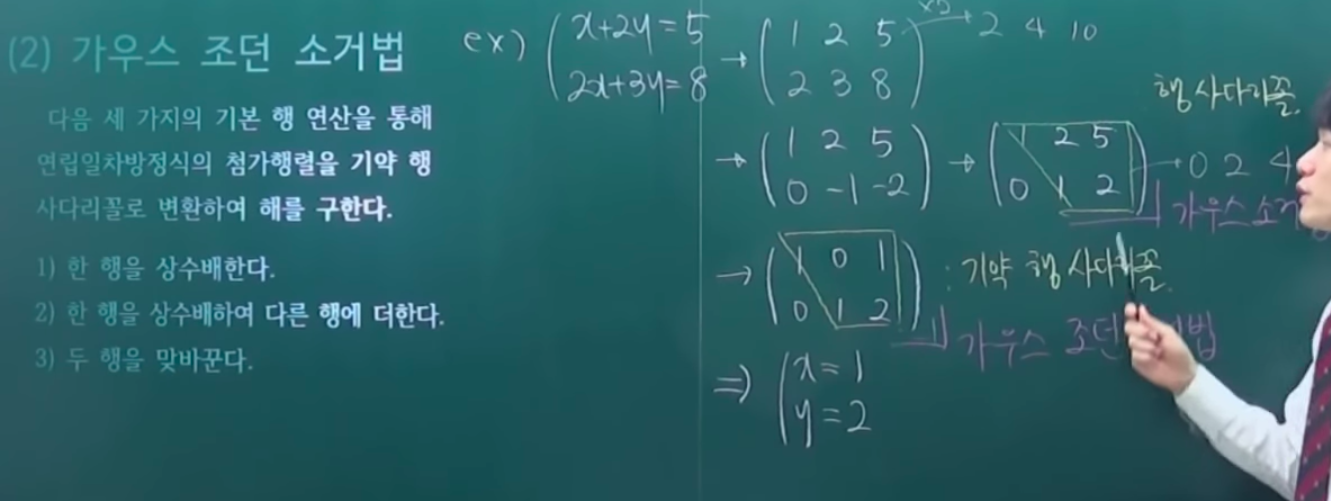 (2) 가우스 조던 소거법
다음 세 가지의 기본 행 연산을 통해
연립일차방정식의 첨가행렬을 기약 행
사다리꼴로 변환하여 해를 구한다.
1) 한 행을 상수배한다.
2) 한 행을 상수배하여 다른 행에 더한다.
3) 두 행을 맞바꾼다.
ex) x+2y=5 → 1 2 5 ×2 → 2 4 10
2x+3y=8 2 3 8
행 사다리꼴
→ 1 2 5 → 1 2 5
0 -1 -2 0 1 2 → 0 2 4
가우스
→ 1 0 1 : 기약 행 사다리꼴
0 1 2
가우스 조던
⇒ x=1
y=2